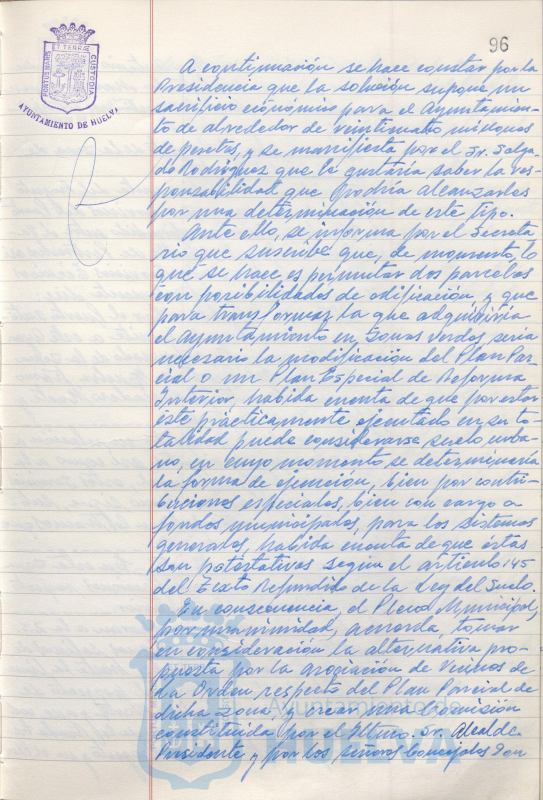 96
PORTUS MARIS ET TERRAE CUSTODIA
AYUNTAMIENTO DE HUELVA
A continuación se hace constar por la
Presidencia que la solución supone un
sacrificio económico para el Ayuntamien-
to de alrededor de veinticuatro millones
de pesetas, y se manifiesta por el Sr. Salga-
do Rodríguez que le gustaría saber la res-
ponsabilidad que podría alcanzarles
por una determinación de este tipo.
Ante ello, se informa por el Secreta
rio que suscribe que, de momento, lo
que se hace es permutar dos parcelas
con posibilidades de edificación, y que
para transformar la que adquiriría
el Ayuntamiento en Zonas Verdes, sería
necesario la modificación del Plan Par-
cial o un Plan Especial de Reforma
Interior, habida cuenta de que por estar
éste prácticamente ejecutado en su to-
talidad puede considerarse suelo urba-
no, en cuyo momento se determinaría
la forma de ejecución, bien por contri-
buciones especiales, bien con cargo a
fondos municipales, para los sistemas
generales, habida cuenta de que éstas
son potestativas según el artículo 145
del Texto Refundido de la Ley del Suelo.
En consecuencia, el Pleno Municipal,
por unanimidad, acuerda, tomar
en consideración la alternativa pro-
puesta por la asociación de Vecinos de
La Orden respecto del Plan Parcial de
dicha Zona, y crear una Comisión
constituida por el Iltmo. Sr. Alcalde-
Presidente y por los señores Concejales Don
Ayuntamiento de
HUELVA